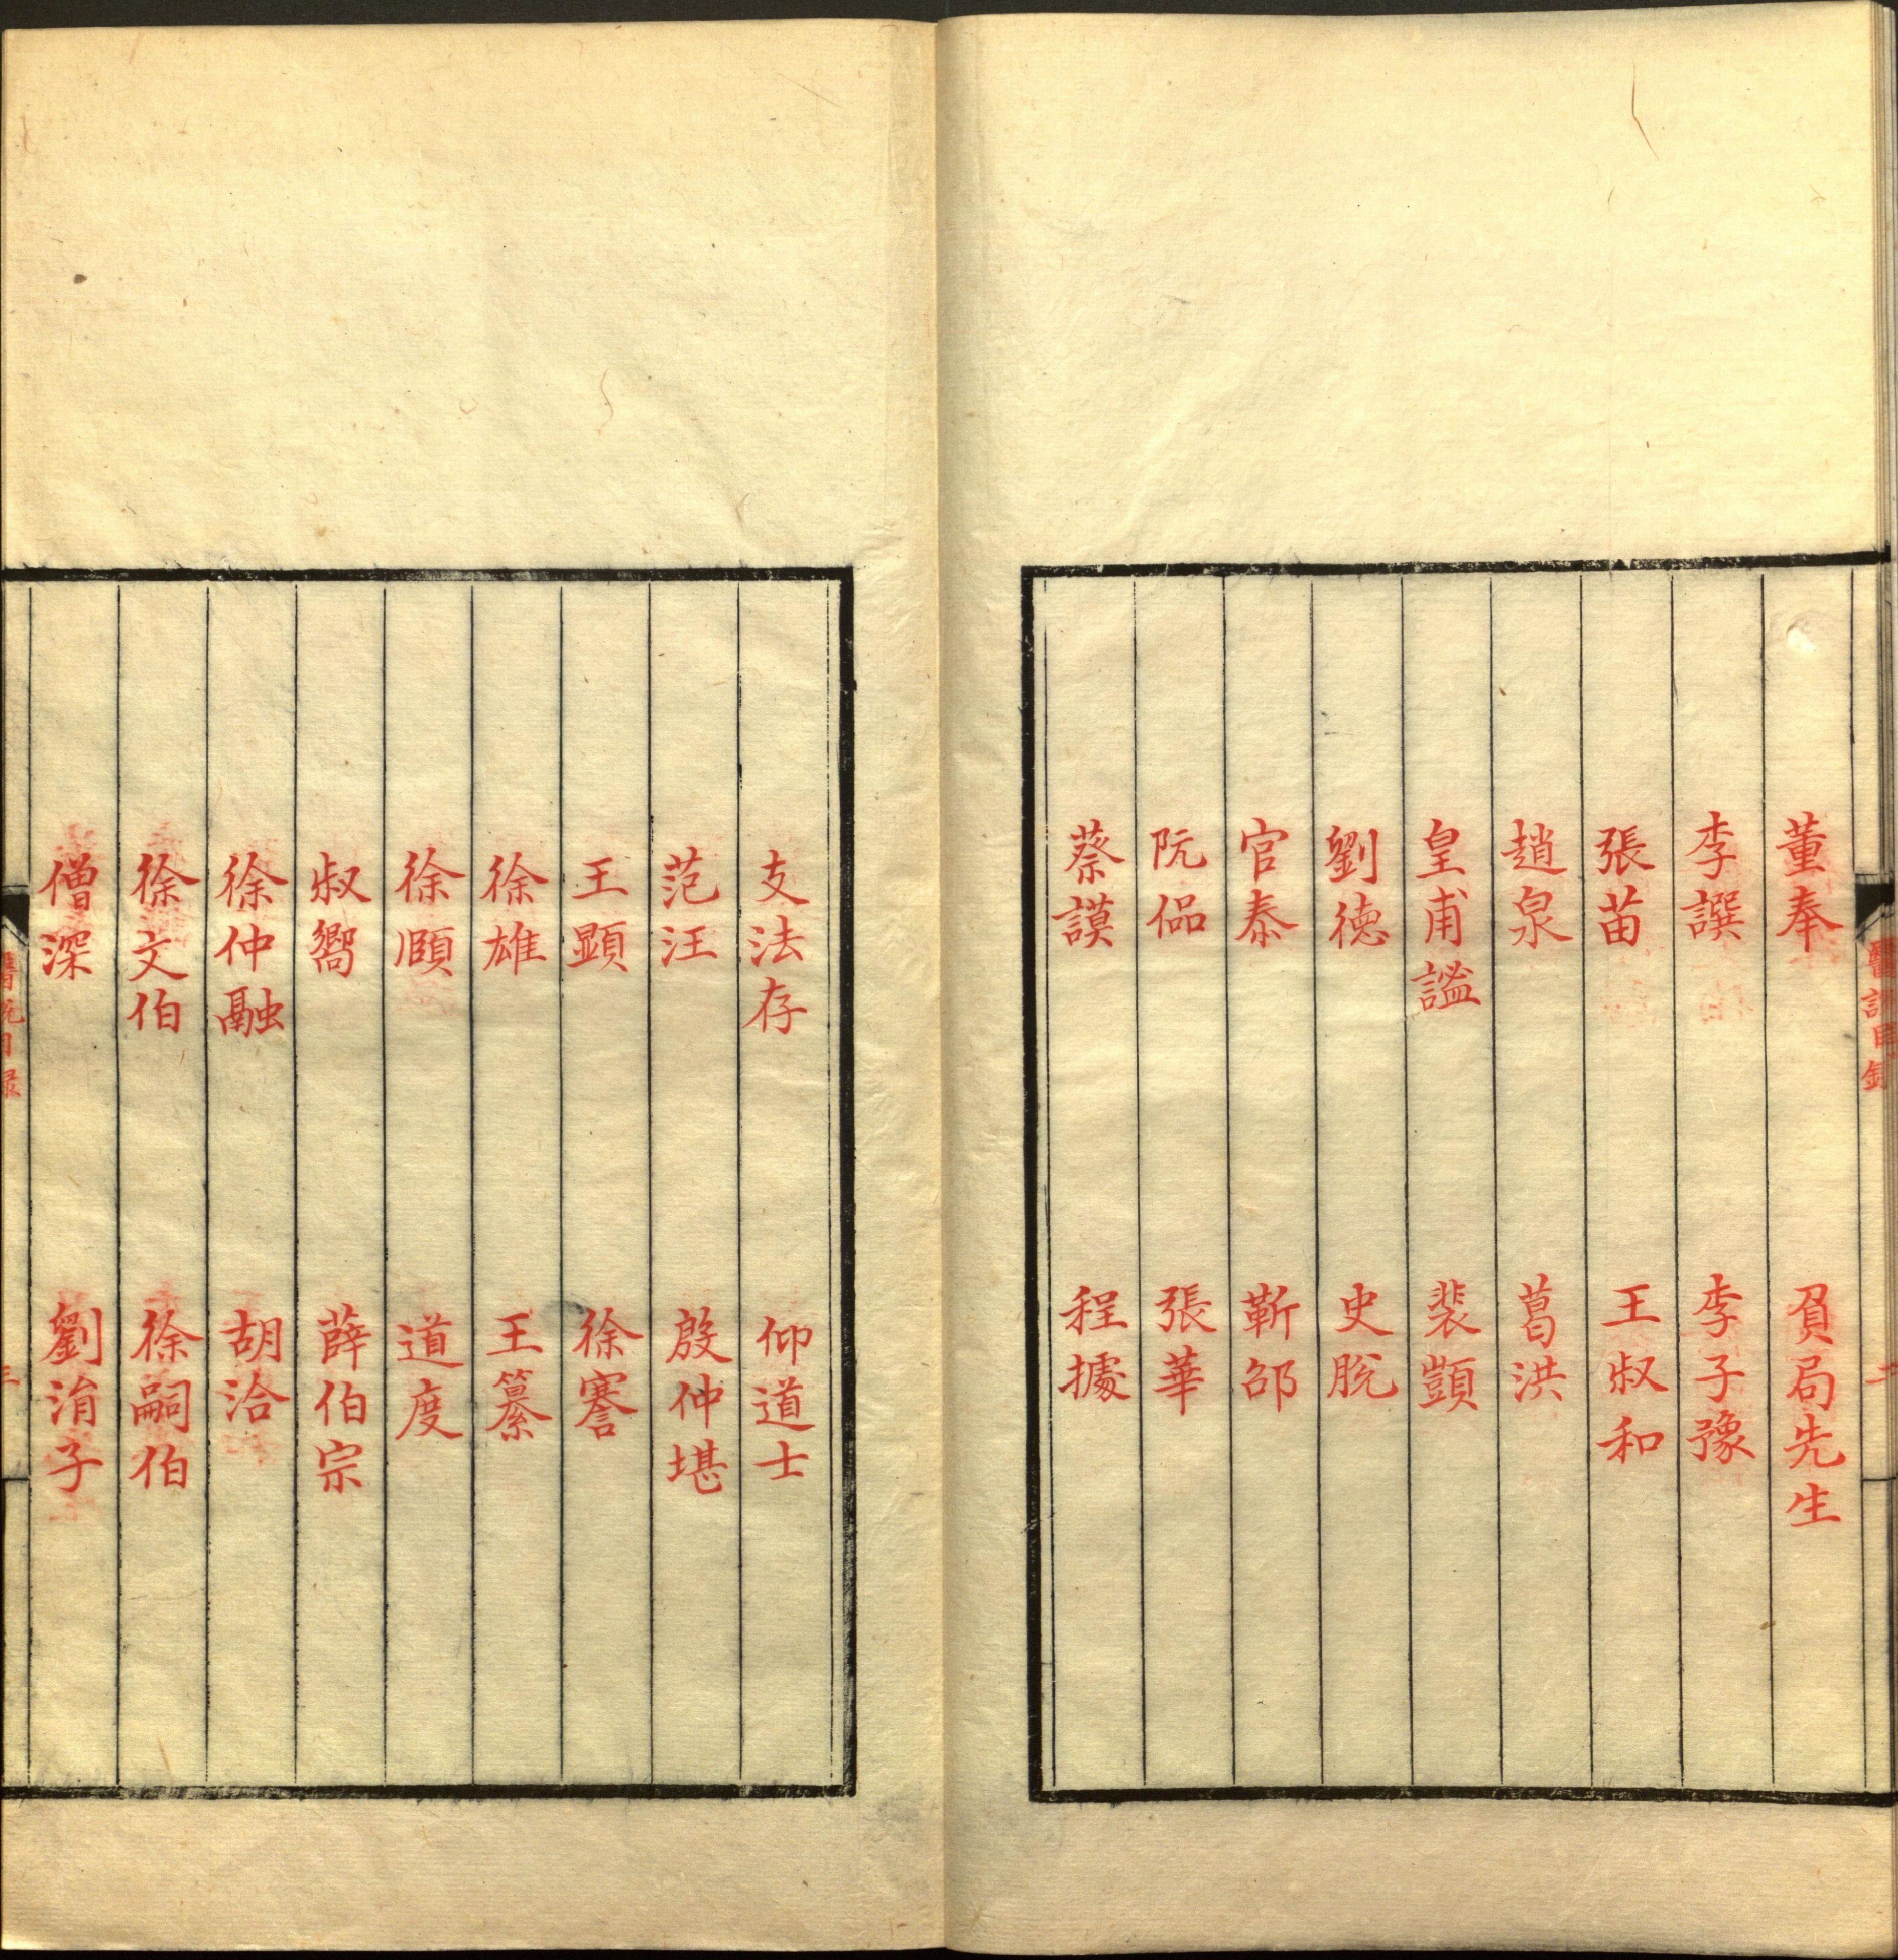 醫說目錄
二
董奉 負局先生
李譔 李子豫
張苗 王叔和
趙泉 葛洪
皇甫謐 裴顗
劉德 史脫
官泰 靳邵
阮侃 張華
蔡謨 程據
支法存 仰道士
范汪 殷仲堪
王顯 徐謇
徐雄 王纂
徐頤 道度
叔嚮 薛伯宗
徐仲融 胡洽
徐文伯 徐嗣伯
僧深 劉涓子
醫說目錄
三